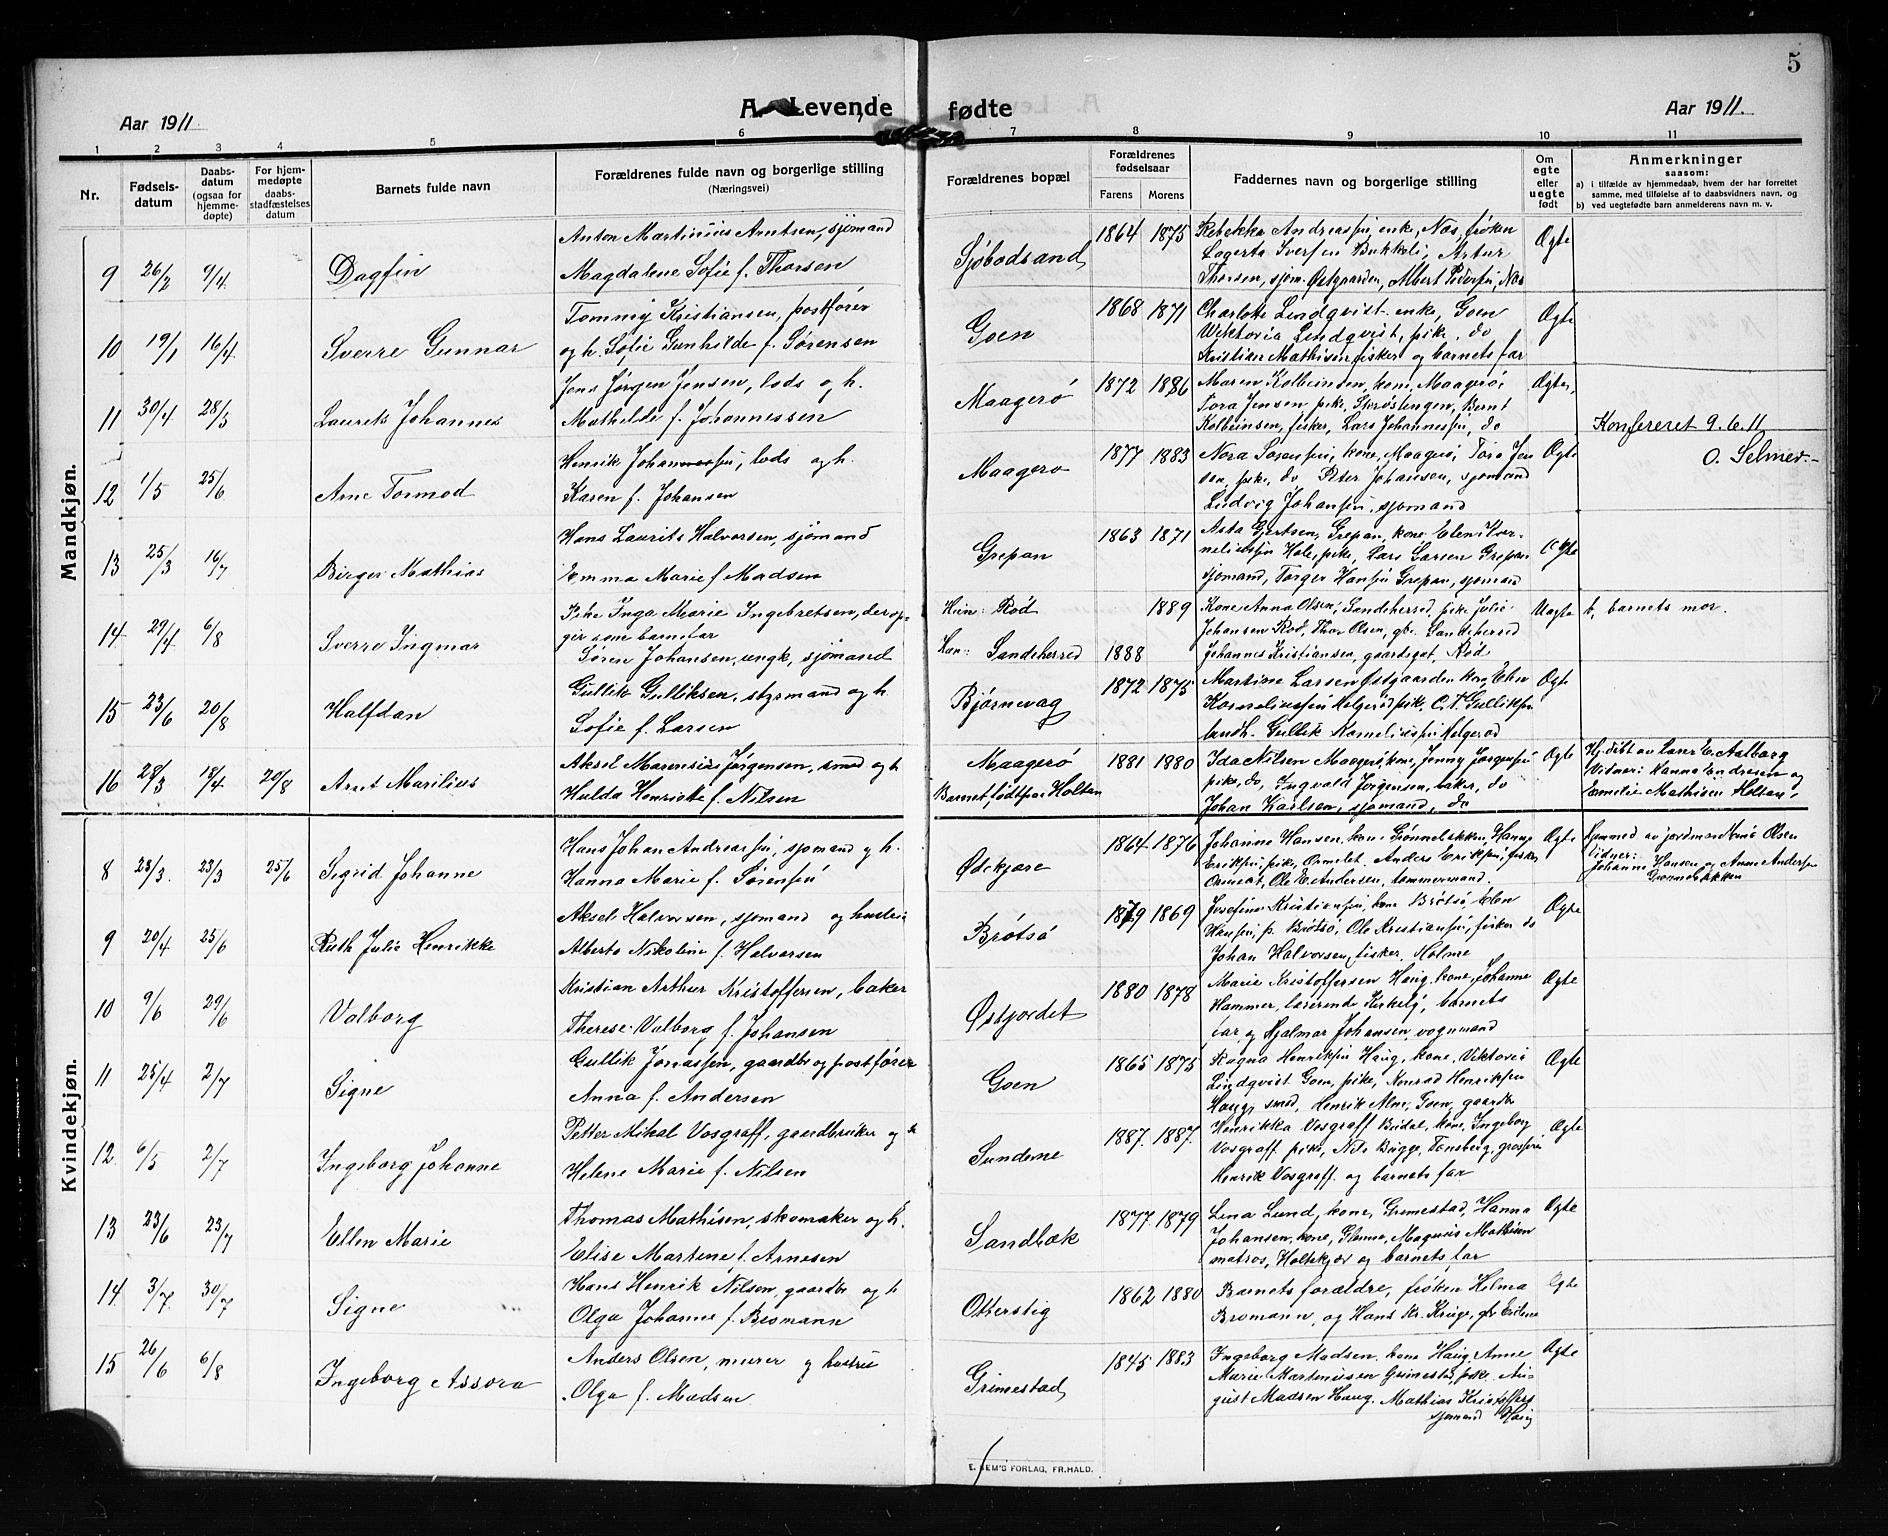 5
A. Levende fødte
Aar 1911.
Aar 1911.
1 2 3 4 5 6 7 8 9 10 11
Nr.
Fødsels-
datum
Daabs-
datum
(ogsaa for
hjemme-
døpte)
For hjem-
medøpte
daabs-
stadfæstelses
datum
Barnets fulde navn
Forældrenes fulde navn og borgerlige stilling
(Næringsvei)
Forældrenes bopæl
Forældrenes
fødselsaar
Farens Morens
Faddernes navn og borgerlige stilling
Om
egte
eller
uegte
født
Anmerkninger
saasom:
a) i tilfælde av hjemmedaab, hvem der har forrettet
samme, med tilføielse af to daabsvidners navn, og
b) ved uegtefødte barn anmelderens navn m. v.
Mandkjøn.
9 26/2 9/4 Dagfin
Anton Martinius Arntsen, sjømand
Magdalene Sofie f. Thorsen
Sjøbodsand 1864 1875
Rebekka Andreassen, enke, Nes, frøken
Lagerta Iversen Bukkeli, Artur
Thorsen, sjøm. Østgaarden, Albert Pedersen, Nes
Ægte
10 19/1 16/4 Sverre Gunnar
Tommy Kristiansen, postfører
og h. Sofie Gunhilde f. Sørensen
Goen 1868 1871
Charlote Lindqvist enke, Goen
Wiktoria Lindqvist, pike, do
Kristian Mathisen fisker og barnets far
Ægte
11 30/4 28/5 Laurits Johannes
Jens Jørgen Jensen, lods og h.
Mathilde f. Johannessen
Maagerø 1872 1886
Maren Kolbeinsen, kone, Maagerø,
Tora Jensen pike, Skrøstengen, Bernt
Kolbeinsen, fisker, Lars Johannessen, do
Ægte,
Konfereret 9.6.11
O. Selmer
12 1/5 25/6 Arne Tormod
Henrik Johannessen, lods og h.
Karen f. Johansen
Maagerø 1877 1883
Nora Sørensen, kone, Maagerø, Tora Jen
sen, pike, do Peter Johansen, sjømand
Ludvig Johansen, sjømand
Ægte
13 25/3 16/7 Birger Mathias
Hans Laurits Halvorsen, sjømand
Emma Marie f Madsen
Grepan 1863 1871
Asta Gjertsen, Grepan, kone, Elen Kor-
neliussen Hole, pike, Lars Larsen Grepan
sjømand, Torger Hansen Grepan, sjømand
Ægte
14 29/4 6/8 Sverre Ingmar
Pike Inga Marie Ingebretsen, der op-
gir som barnefar
Søren Johansen, ungk, sjømand
Hun: Rød
Han: Sandeherred 1888 1889
Kone Anna Olsen, Sandeherred, pike Julie
Johansen Rød, Thor Olsen, gbr. Sandeherred
Johannes Kristiansen, gaardsgut, Rød
Uægte b, barnets mor.
15 23/6 20/8 Halfdan
Gullik Gulliksen, styrmand og h
Sofie f. Larsen
Bjørnevag 1872 1875
Martine Larsen Østgaarden kone, Elen
Korneliussen Helgerød pike, O. A. Gulliksen
landh. Gullik Korneliussen Helgerød
Ægte
16 28/3 18/4 20/8 Arnt Marilius
Aksel Marensius Jørgensen, smed og h
Hulda Henriette f. Nilsen
Maagerø
Barnet født paa Holtan 1881 1880
Ida Nilsen Maagerø, kone, Jenny Jørgensen
pike, do, Ingvald Jørgensen, baker, do
Johan Karlsen, sjømand, do
Ægte
Hj. døbt av Lars E. Aalborg
Vidner: Hanna Endresen og
Emelie Mathisen Holtan.
Kvindekjøn.
8 23/3. 23/3 25/6 Sigrid Johanne
Hans Johan Andreassen, sjømand og h.
Hanna Marie f. Sørensen
Ødekjære 1864 1876
Johanne Hansen, kone, Grønnebakken, Hanna
Eriksen, pike, Ormelet, Anders Eriksen, fisker
Ormelet, Ole E. Andersen, tømmermand.
Ægte
Hjemmed av jordmor Olsen
Vidner:
Johanne Hansen og Anne Andersen
Grønnebakken
9 20/4 25/6 Ruth Julie Henrikke
Aksel Halvorsen, sjømand og hustru
Alberte Nikoline f. Halvorsen
Brøtsø 1879 1869
Josefine Kristiansen, kone Brøtsø, Elen
Hansen, p. Brøtsø, Ole Kristiansen, fisker do
Johan Halvorsen, fisker, Holme
Ægte
10 9/6 29/6 Valborg
Kristian Arthur Kristoffersen, baker
Therese Valborg f. Johansen
Østjordet 1880 1878
Marie Kristoffersen Haug, kone, Johanne
Hammer, lærerinde Kirkely, barnets
far og Hjalmar Johansen, vognmand
Ægte
11 25/4 2/7 Signe
Gullik Jonassen, gaardbr og postfører
Anna f. Andersen
Goen 1865 1875
Ragna Henriksen Haug, kone, Viktoria
Lindqvist Goen, pike, Konrad Henriksen
Haug, smed, Henrik Alme, Goen, gaardbr
Ægte
12 6/5 2/7 Ingeborg Johanne
Petter Mikal Vosgraff, gaardbruker og h
Helene Marie f. Nilsen
Sundene 1887. 1887.
Henrikka Vosgraff Budal, kone, Ingeborg
Vosgraff pike, Nils Bugge, Tønsberg, grosserer
Henrik Vosgraff og barnets far
Ægte
13 23/6 23/7 Ellen Marie
Thomas Mathisen, skomaker og h.
Elise Martene f. Arnesen
Sandbæk 1877. 1879
Lina Lund, kone, Grimestad, Hanna
Johansen, kone, Glenne, Magnus Mathisen
matros, Holtekjær og barnets far
Ægte
14 3/7. 30/7 Signe
Hans Henrik Nilsen, gaardbr og h
Olga Johanne f. Bromann
Otterstig 1862 1880
Barnets forældre, frøken Helma
Bromann, og Hans Kr. Kruge, gbr
Ægte
15 26/6 6/8 Ingeborg Assora
Anders Olsen, murer og hustru
Olga f. Madsen
Grimestad 1845 1883
Ingeborg Madsen, kone Haug, Anne
Marie Martinussen Grimestad, pike Au-
gust Madsen Haug, Mathias Kristoffers
sjømand Haug
Ægte
E. SEM'S FORLAG, FR.HALD.